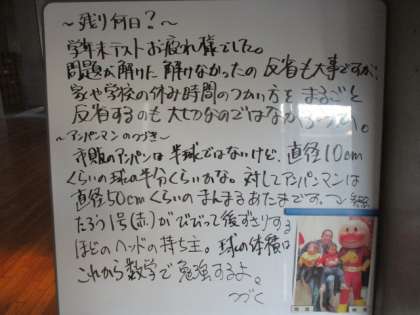 ～残り何日？～
学年末テストお疲れ様でした。
問題が解けた 解けなかったの反省も大事ですが、
家や学校の休み時間のつかい方をまるごと
反省するのも大切なのではないでしょうか。
～アンパンマンのつづき～
市販のアンパンは半球ではないけど、直径10cm
くらいの球の半分くらいかな。対してアンパンマンは
直径50cmくらいのまんまるあたまです。
たろう1号(赤)がびびって後ずさりする
ほどのヘッドの持ち主。球の体積は
これから数学で勉強するよ。
つづく